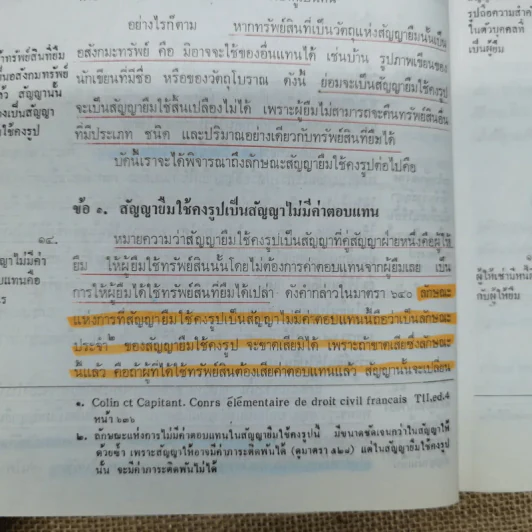 อย่างไรก็ตาม หากทรัพย์สินที่เป็นวัตถุแห่งสัญญายืมนั้นเป็น
อสังกมะทรัพย์ คือ มิอาจจะใช้ของอื่นแทนได้ เช่นบ้าน รูปภาพเขียนของ
นักเขียนที่มีชื่อ หรือของวัตถุโบราณ ดังนี้ ย่อมจะเป็นสัญญายืมใช้คงรูป
จะเป็นสัญญายืมใช้สิ้นเปลืองไม่ได้ เพราะผู้ยืมไม่สามารถจะคืนทรัพย์สินอื่น
ที่มีประเภท ชนิด และปริมาณอย่างเดียวกับทรัพย์สินที่ยืมได้
บัดนี้เราจะได้พิจารณาถึงลักษณะสัญญายืมใช้คงรูปต่อไปคือ
ข้อ ๑. สัญญายืมใช้คงรูปเป็นสัญญาไม่มีค่าตอบแทน
หมายความว่าสัญญายืมใช้คงรูปเป็นสัญญาที่คู่สัญญาฝ่ายหนึ่งคือผู้ให้
ยืม ให้ผู้ยืมใช้ทรัพย์สินนั้นโดยไม่ต้องการค่าตอบแทนจากผู้ยืมเลย เป็น
การให้ผู้ยืมได้ใช้ทรัพย์สินที่ยืมได้เปล่า ดังคำกล่าวในมาตรา ๖๔๐ ลักษณะ
แห่งการที่สัญญายืมใช้คงรูปเป็นสัญญาไม่มีค่าตอบแทนนี้ถือว่าเป็นลักษณะ
ประจำ๒ ของสัญญายืมใช้คงรูป จะขาดเสียมิได้ เพราะถ้าขาดเสียซึ่งลักษณะ
นี้แล้ว คือถ้าผู้ที่ได้ใช้ทรัพย์สินต้องเสียค่าตอบแทนแล้ว สัญญานั้นจะเปลี่ยน
๑. Colin ct Capitant. Conrs élémentaire de droit civil francais TII,ed.4
หน้า ๖๓๖
๒. ลักษณะแห่งการไม่มีค่าตอบแทนในสัญญายืมใช้คงรูปนี้ มีขนาดชัดเจนกว่าในสัญญาให้
ด้วยซ้ำ เพราะสัญญาให้อาจมีค่าภาระติดพันได้ (ดูมาตรา ๕๒๘) แต่ในสัญญายืมใช้คงรูป
นั้น จะมีค่าภาระติดพันไม่ได้
๑๔.
ญาไม่มีค่า
บแทนคือ
ร
ทรัพย์สินที่ยืม
นอสังกมทรัพย์
ล้ว สัญญานั้น
องเป็นสัญญา
ใช้คงรูป
รูปถือความสำ
ในตัวบุคคลที่
เป็นผู้ยืม
กับผู้ให้ยืม